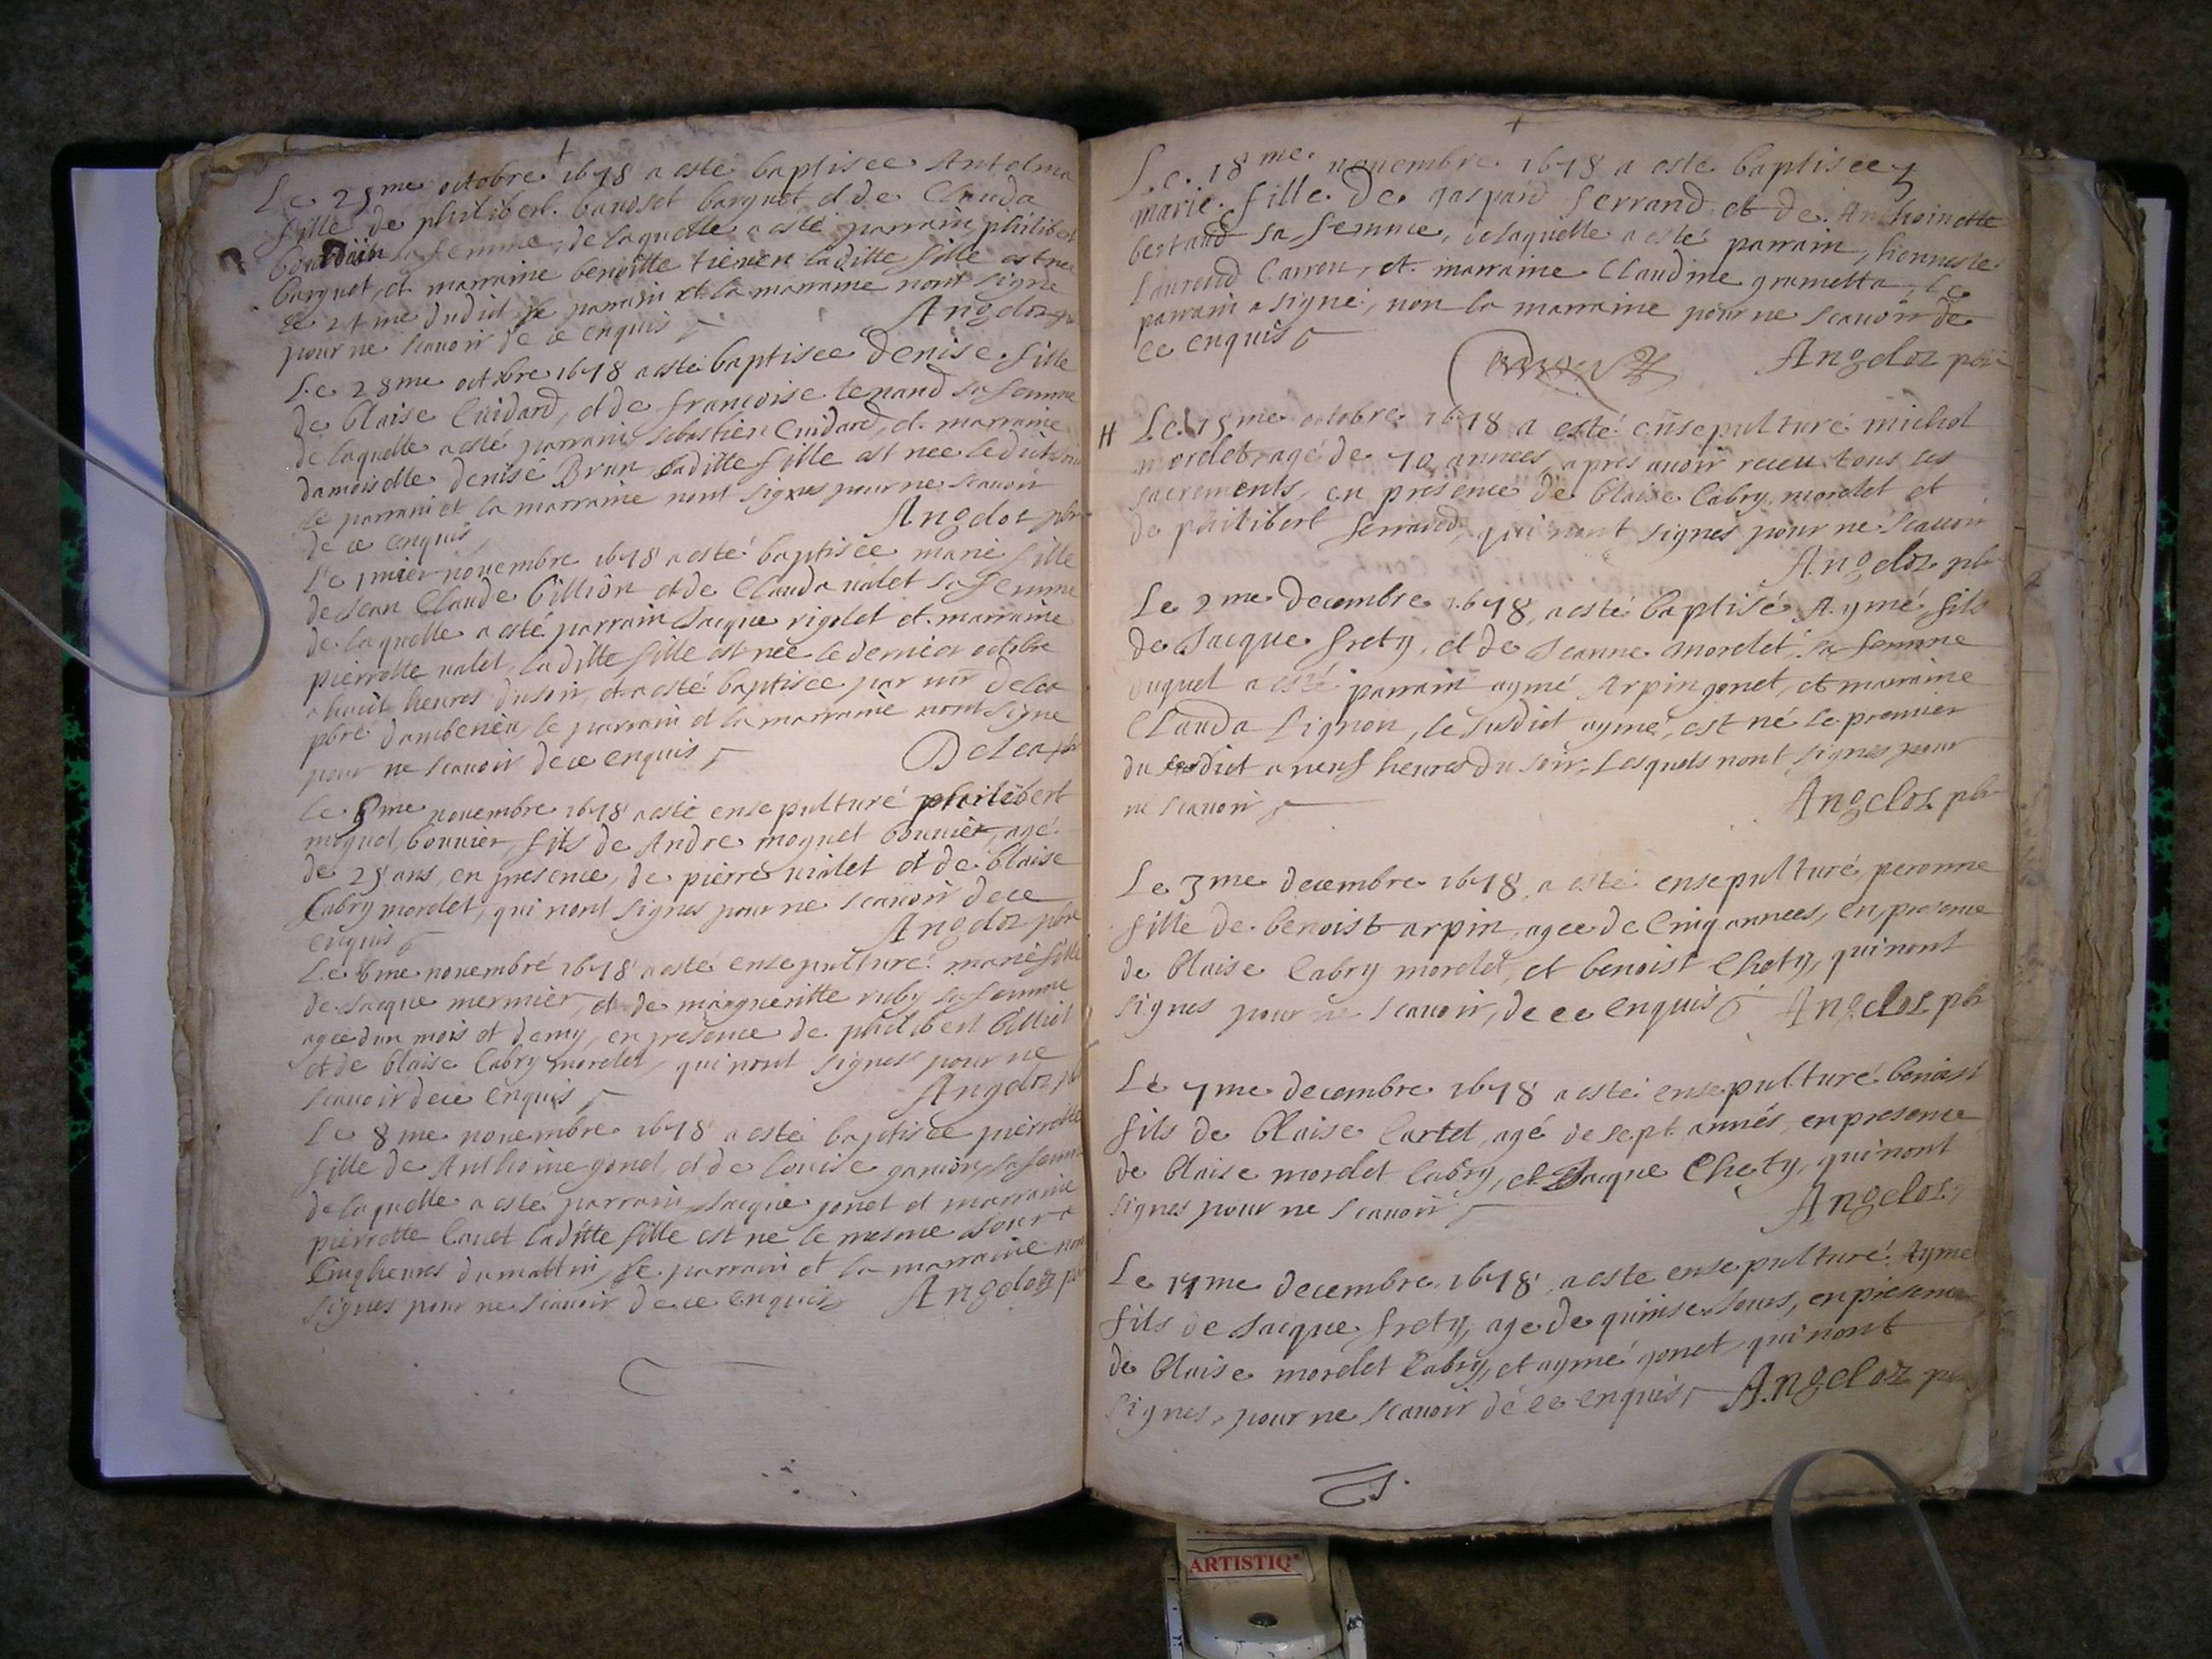 Le 25me octobre 1678 a esté baptisée Antelma
fille de philibert banoset barquet et de Clauda
sa femme, de laquelle a esté parrain philibert
barquet, et marraine benoitte tienen laditte fille est nee
le 24me dudict, le parrain et la marraine nont signé
pour ne scauoir de ce enquis
Angeloz
Le 28me octobre 1678 a esté baptisee Denise fille
de blaise Cuidard, et de françoise tenand sa femme
de laquelle a esté parrain sebastien Cuidard, et marraine
damoiselle denise Brun, laditte fille est nee ledict
le parrain et la marraine nont signes pour ne scauoir
de ce enquis
Angeloz pbre
Le 1mier nouembre 1678 a esté baptisée marie fille
de Jean Claude billion et de Clauda ualet sa femme
de laquelle a esté parrain Jacque rigolet et marraine
pierrette ualet, laditte fille est née le dernier octobre
a huict heures du soir, et a esté baptisee par mr Delea
pbre dambeneu, le parrain et la marraine nont signe
pour ne scauoir de ce enquis
Delea pbr
Le nouembre 1678 a esté ensepulturé philibert
moguet bonnier, fils de Andre moguet bonnier, agé
de 25 ans, en presence, de pierre uialet et de blaise
Cabry morelet, qui nont signes pour ne scauoir de ce
enquis
Angeloz pbre
Le 6me nouembre 1678 a esté ensepulturé marie fille
de Jacque mermier, et de margueritte ruby sa femme
agee dun mois et demy, en presence de philibert billiot
et de blaise Cabry morelet, qui nont signes pour ne
scauoir de ce enquis
Angeloz pb
Le 8me nouembre 1678 a esté baptisee pierrette
fille de Anthoine gonet, et de Louise ganion, sa femme
de laquelle a esté parrain Jacque gonet et marraine
pierrette Cauet laditte fille est ne le mesme Jour a
Cinq heures du mattin, le parrain et la marraine nont
signes pour ne scauoir de ce enquis
Angeloz pb
Le 18me nouembre 1678 a esté baptisee
marie fille de gaspard ferrand et de Anthoinette
bertand sa femme, de laquelle a esté parrain, honneste
Laurend Carron, et marraine Claudine grumetta, Le
parrain a signé, non la marraine pour ne scauoir de
ce enquis
Angeloz pbr
H Le 15me octobre 1678 a esté ensepulturé michel
morelet agé de 70 annees, apres auoir receu tous ses
sacrements, en presence de blaise Cabry morelet et
de philibert ferrand, qui nont signes pour ne scauoir
Angeloz pb
Le 2me Decembre 1678, a esté baptisé Aymé fils
de Jacque frety, et de Jeanne morelet, sa femme
duquel a esté parrain aymé Arpin gonet, et marraine
Clauda Lignon, le susdict aymé, est né le premier
du susdict a neuf heures du soir, Lesquels nont signes pour
ne scauoir
Angeloz pb
Le 3me decembre 1678 a esté ensepulturé, peronne
fille de benoist arpin, agee de Cinq annees, en presence
de blaise Cabry morelet, et benoist Chety, qui nont
signes pour ne scauoir, de ce enquis
Angeloz pb
Le 7me decembre 1678 a esté ensepulturé benoist
fils de blaise Cartet, agé de sept années, en presence
de blaise morelet Cabry, et Jacque Chety, qui nont
signes pour ne scauoir
Angeloz
Le 17me decembre 1678, a esté ensepulturé Ayme
fils de Jacque frety, age de quinse Jours, en presence
de blaise morelet Cabry, et aymé gonet, qui nont
signes, pour ne scauoir de ce enquis,
Angeloz pb
ARTISTIQ